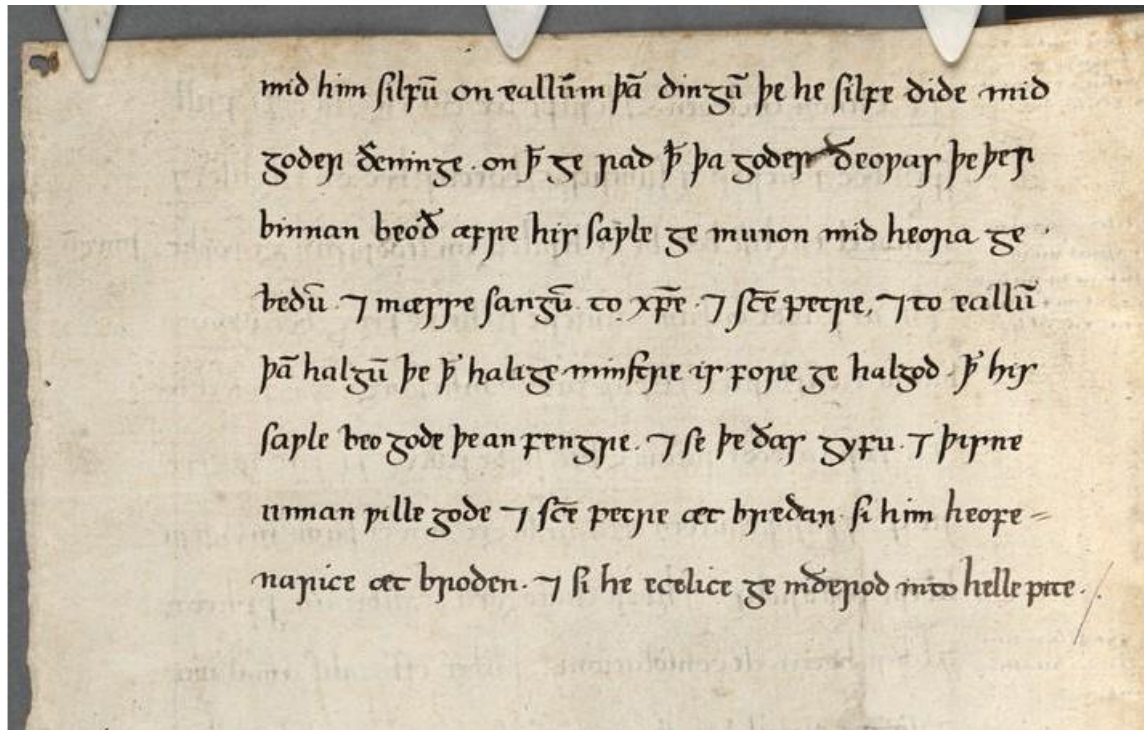 mid him silfū on eallūm þā dingū þe he silfe dide mid
godes ðeninge. on ꝥ ge rad ꝥ þa godes ðeoƿas þe þer
binnan beoð æfre his saƿle ge munon mid heora ge
bedū. ⁊ mæsse sangū. to xp̄e. ⁊ sc̄e petre, ⁊ to eallū
þā halgū þe ꝥ halige minstre is fore ge halgod. ꝥ his
saƿle beo gode þe an fengre. ⁊ se þe ðas gyfu. ⁊ þisne
unnan ƿille gode ⁊ sc̄e petre æt bredan. si him heofe=
narice æt broden. ⁊ si he ecelice ge niðerod into helle ƿite.